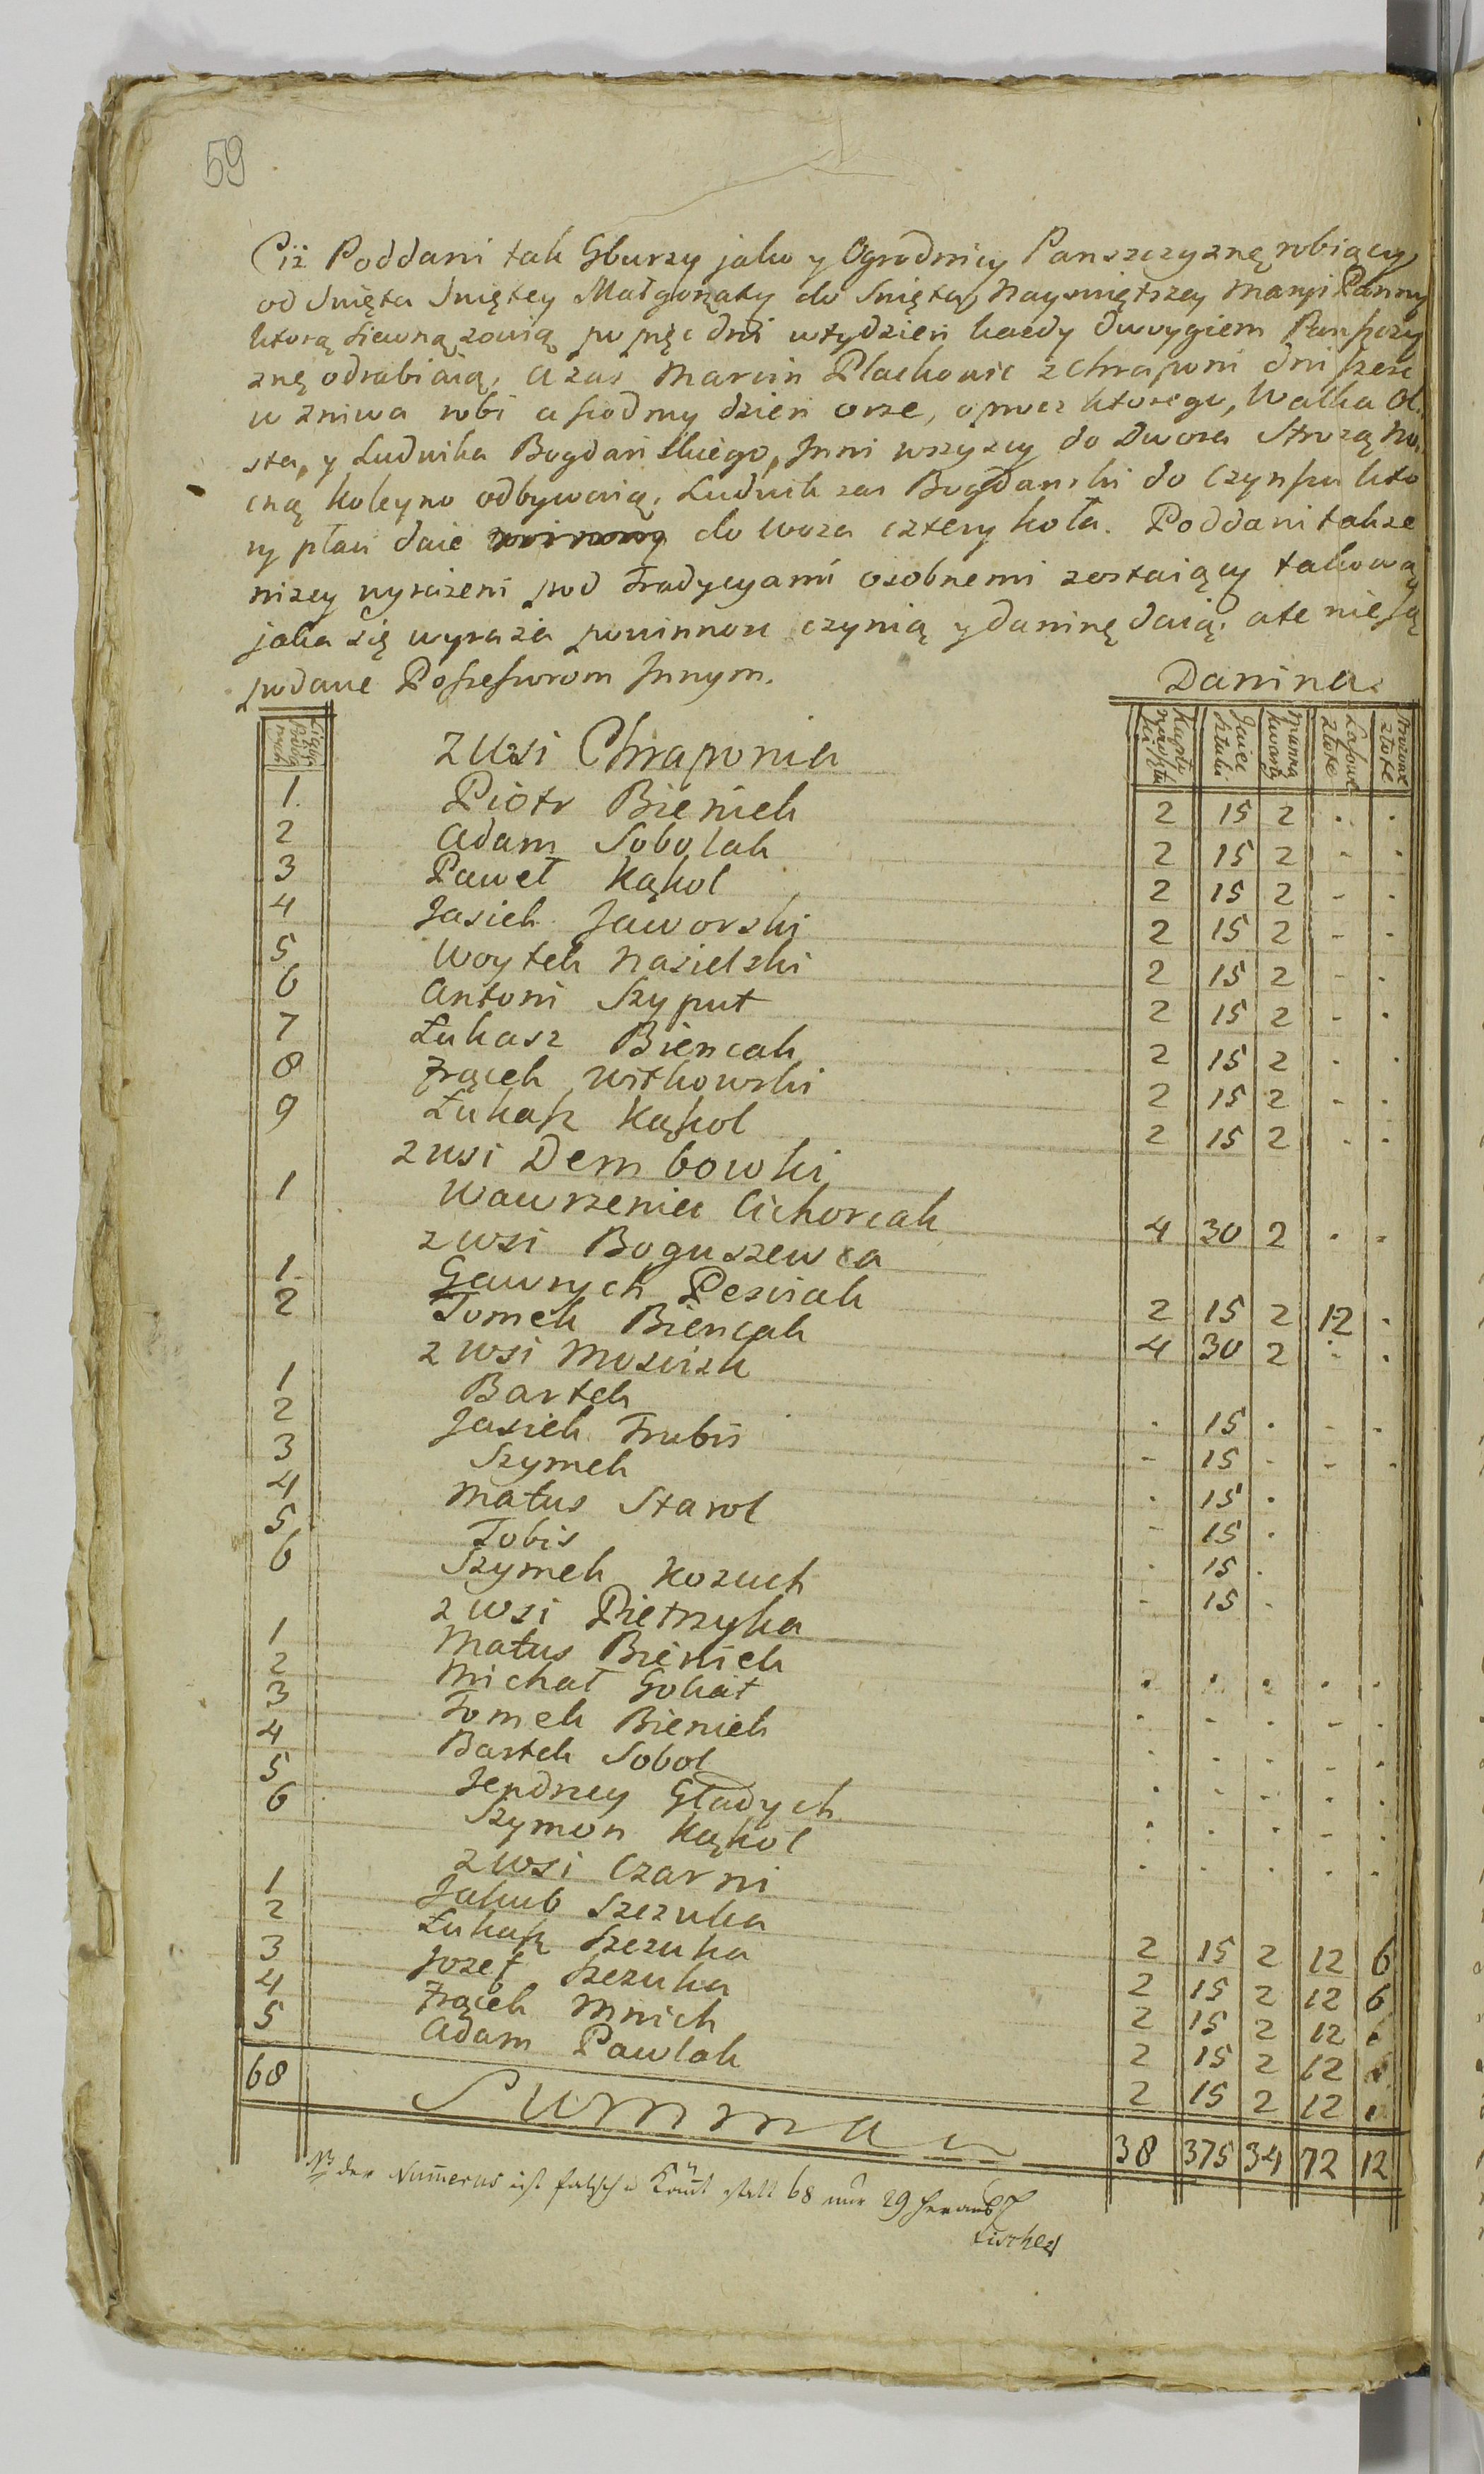 59
Ciż Poddani tak Gburzy jako y Ogrodnicy Panszczyznę robiący
od Swięta Swiętey Małgorzaty do Swięta Nayswiętszey Maryi Panny
ktorą Siewną zowią po pięc dni w tydzien kazdy dwoygiem Panszczy
znę odrabiaią, a zas Marcin Plachowic z Chraponi dni szesc
w zniwa robi a siodmy dzien orze, oprocz ktorego, Walka Ol
sta, y Ludwika Bogdanskiego, Jnni wszyscy do Dwora Strozą no
cną koleyno odbywaią. Ludwik zas Bogdanski do Czynszu kto
ry płaci daie do woza cztery koła. Poddani takze
nizey wyrazeni pod Tradycyami osobnemi zostaiący takową
jaka się wyraża powinnosc czynią y daninę daią. ale nie są
podane Possessorom Jnnym.
Danina.
Liczba
Kapłony
Jaica Sztuki
Kwarty
złote
złote
z Wsi Chraponia
1. Piotr Bieniek 2 15 2 . .
2 Adam Sobolak 2 15 2 - .
3 Paweł Kąkol 2 15 2 - .
4 Jasiek Jaworski 2 15 2 - .
5 Woytek Nasielski 2 15 2 - .
6 Antoni Szyput 2 15 2 - .
7 Łukasz Biencak 2 15 2 . .
8 Frącek Witkowski 2 15 2 - .
9 Łukasz Kąkol 2 15 2 . .
z wsi Dembowki
1 Wawrzeniec Cichorcak 4 30 2 . .
z wsi Boguszewca
1. Gawrych Pesciak 2 15 2 12 .
2 Tomek Biencak 4 30 2 - .
z wsi Moscisk
1 Bartek . 15 . - .
2 Jasiek Trubis - 15 - - .
3 Szymek . 15 .
4 Matus Starol - 15 .
5 Tobis . 15 .
6 Szymek Kozuch - 15 -
z wsi Pietrzyka
1 Matus Bieniek . . . . .
2 Michał Gokat . - . - .
3 Tomek Bieniek . . . - .
4 Bartek Sobol . - - . .
5 Jendrzey Gładych . . . - .
6 Szymon Kąkol . . . . .
z wsi Czarni
1 Jakub Szczuka 2 15 2 12 6
2 Łukasz Szczuka 2 15 2 12 6
3 Jozef Szczuka 2 15 2 12
4 Frącek Mnich 2 15 2 12
5 Adam Pawlak 2 15 2 12
68 Summa 38 375 34 72 12
NB der Numerus ist falsch u kömt statt 68 nur 29 heraus
Lischer